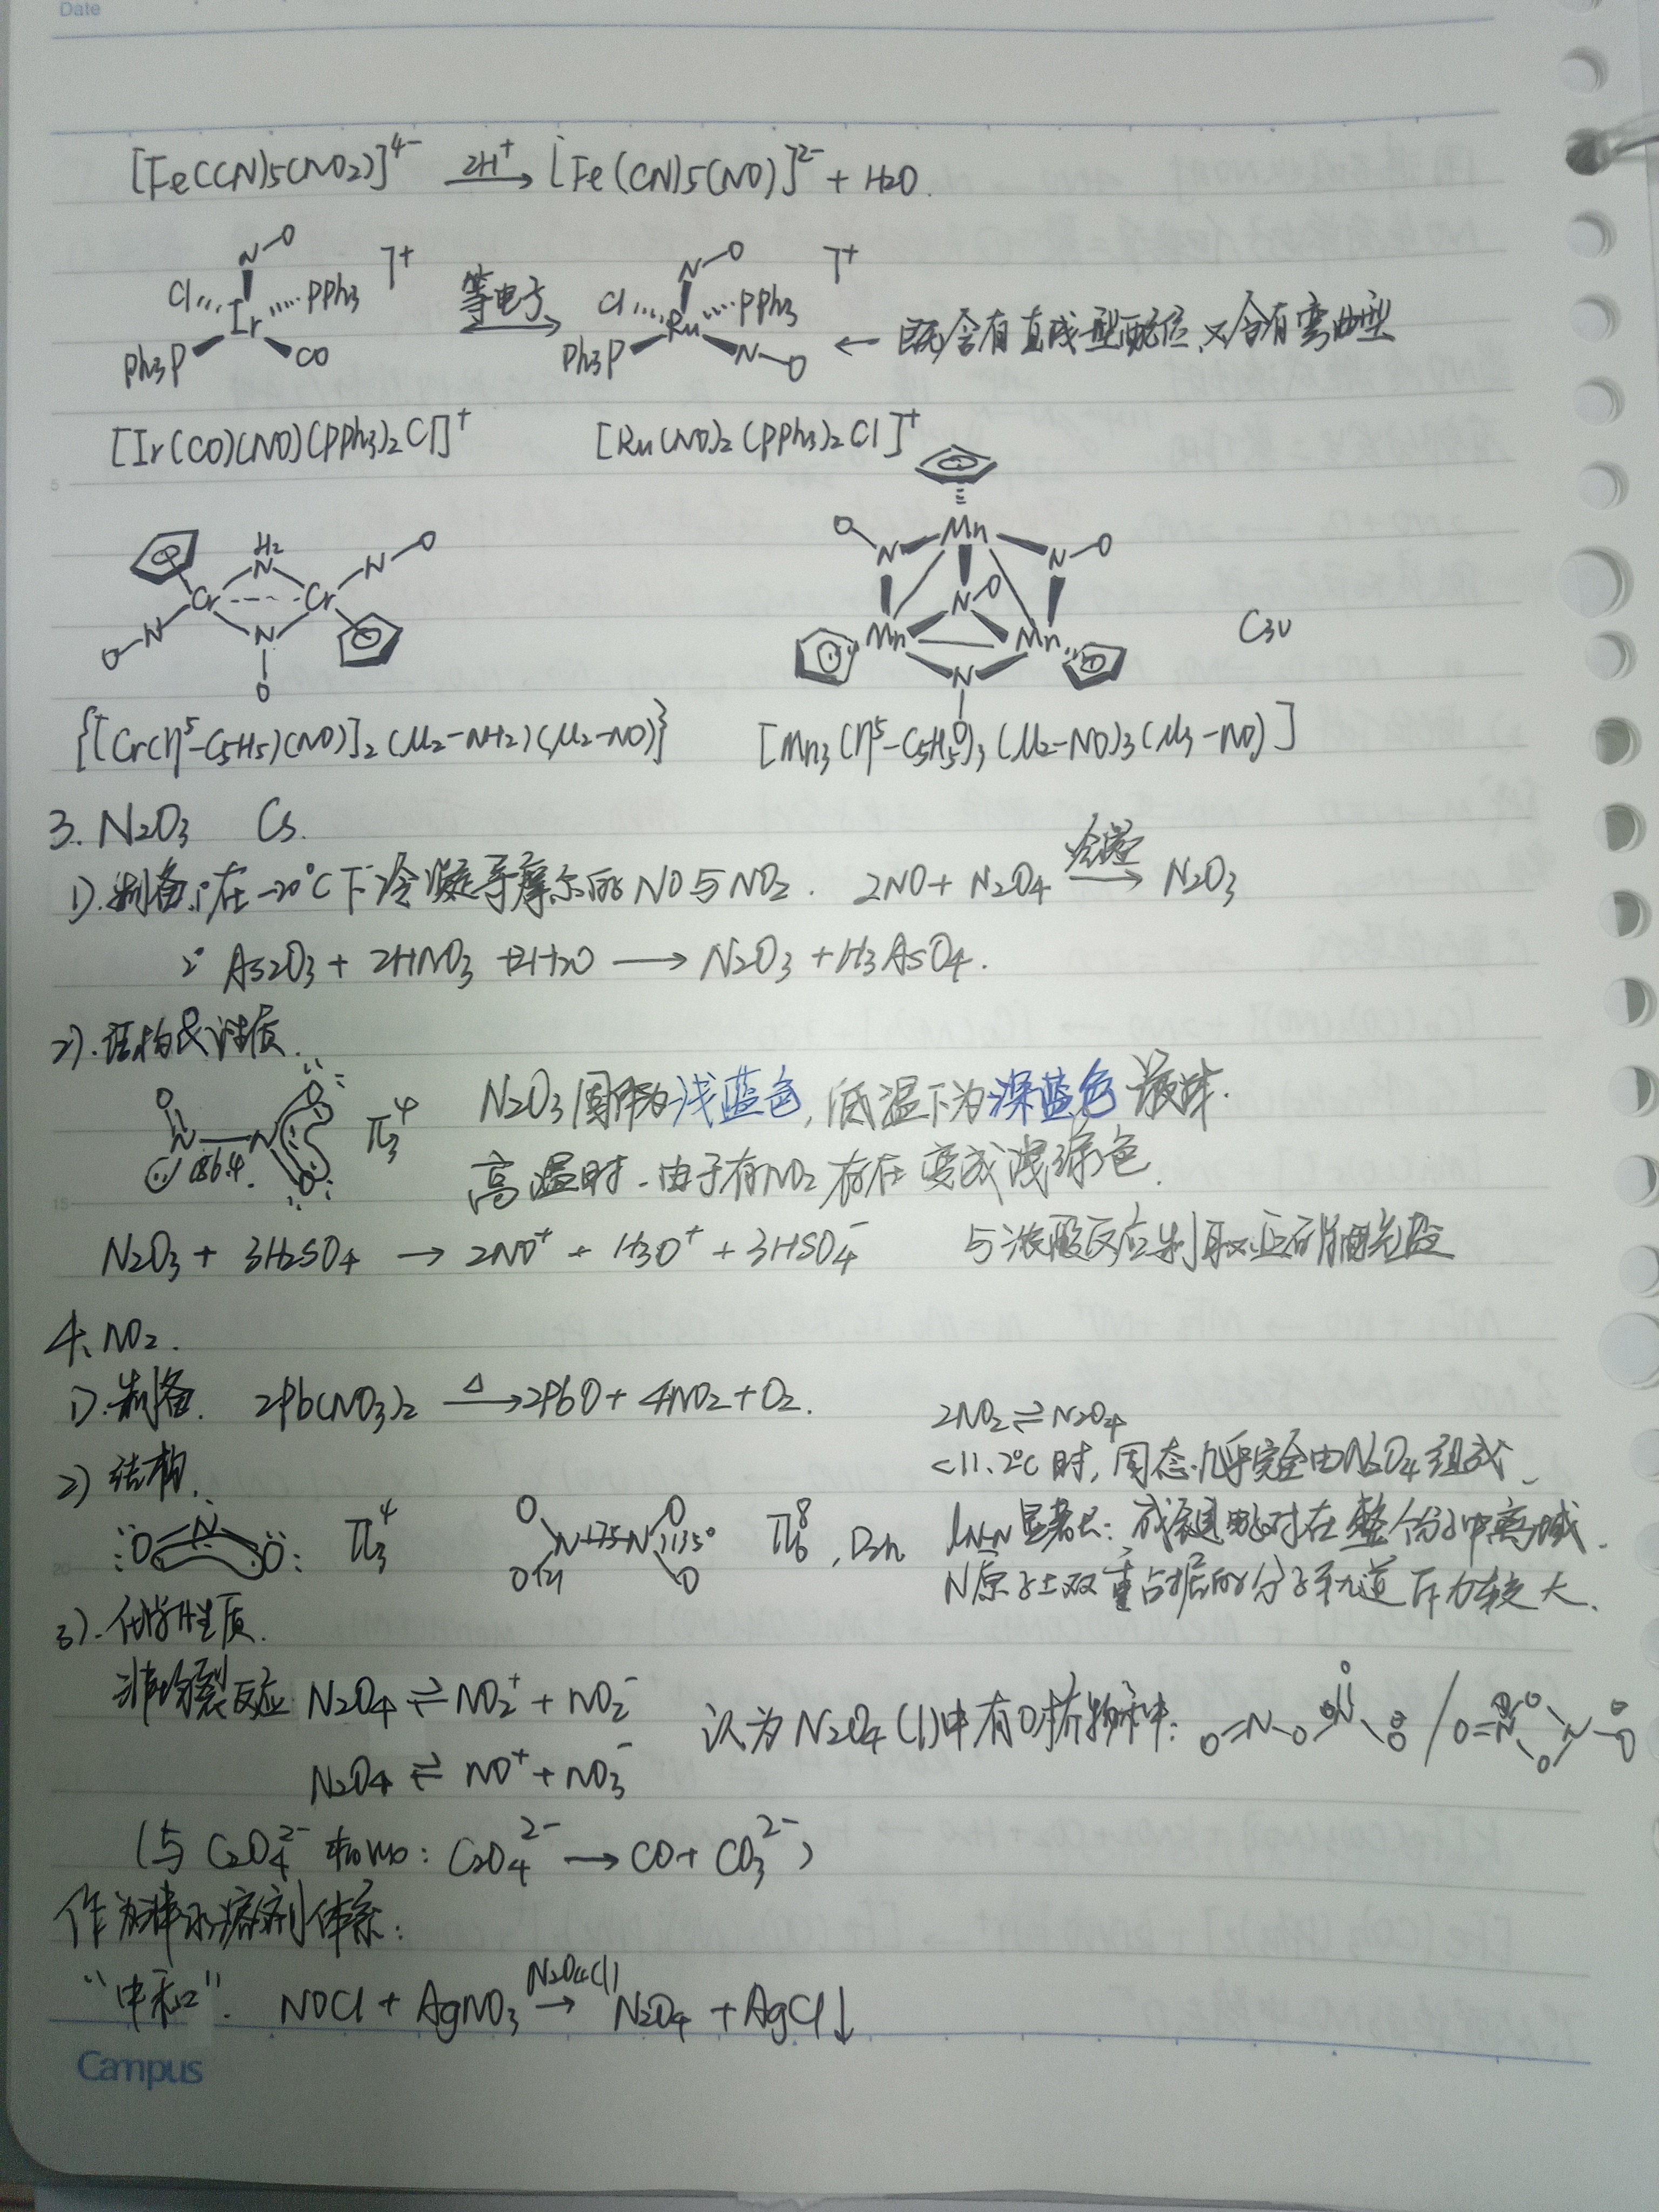 Date
[Fe(CN)5(NO2)]4- 2H+ → [Fe(CN)5(NO)]2- + H2O.
N-O ]+ 等电子 N-O ]+
Cl PPh3 Ir Ph3P CO Cl PPh3 Ru Ph3P N-O ← 既含有直线型配位、又含有弯曲型
[Ir(CO)(NO)(PPh3)2Cl]+ [Ru(NO)2(PPh3)2Cl]+
H2 N Cr Cr N-O O-N N O O N Mn N O N O Mn Mn N O C3v
{[Cr(η5-C5H5)(NO)]2(μ2-NH2)(μ2-NO)} [Mn3(η5-C5H5)3(μ2-NO)3(μ3-NO)]
3. N2O3 Cs.
1). 制备: 1° 在-20℃下冷凝等摩尔的NO与NO2. 2NO + N2O4 冷凝 → N2O3
2° As2O3 + 2HNO3 + 2H2O → N2O3 + H3AsO4.
2). 结构&性质.
O N 186.4 N O O π34 N2O3固体为浅蓝色, 低温下为深蓝色液体.
高温时, 由于有NO2存在变成浅绿色.
N2O3 + 3H2SO4 → 2NO+ + H3O+ + 3HSO4- 与浓酸反应制取亚硝酰盐
4. NO2.
1). 制备. 2Pb(NO3)2 Δ → 2PbO + 4NO2 + O2.
2NO2 ⇌ N2O4
<11.2℃时, 固态几乎完全由N2O4组成.
2) 结构.
O N O π34 O O N 175 N 135° O 121 O π68, D2h lN-N显著长: 成键电子对在整个分子中离域.
N原子上双重占据的分子轨道斥力较大.
3). 化学性质.
非均裂反应 N2O4 ⇌ NO2+ + NO2- 认为N2O4(l)中有O桥物种: O=N O N O O / O=N O O N O
N2O4 ⇌ NO+ + NO3-
(与C2O42-相似: C2O42- → CO + CO32-)
作为非水溶剂体系:
"中和". NOCl + AgNO3 N2O4(l) → N2O4 + AgCl↓
Campus